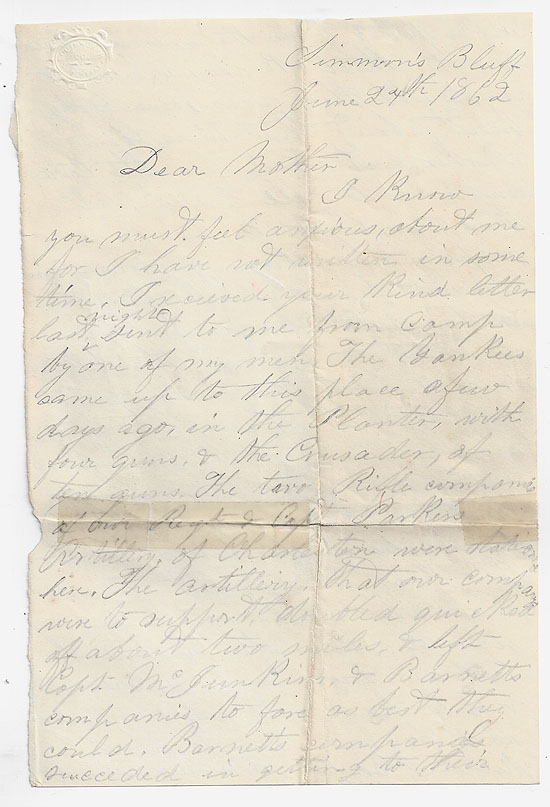 Simmon's Bluff
June 24th 1862
Dear Mother
I Know
you must feel anxious, about me
for I have not written in some
time. I received your kind letter
last night sent to me from camp
by one of my men. The Yankees
came up to this place a few
days ago, in the Planter, with
four guns, & the Crusader, of
ten guns. The two Rifle companies
of our Regt & Capt Parkers
Artillery of Charleston were station
here. The artillery, that our company
were to support, doubled quicked
off about two miles, & left
Capt McJunkin & Barnetts
companies to fare as best they
could. Barnetts companie
succeded in getting to their